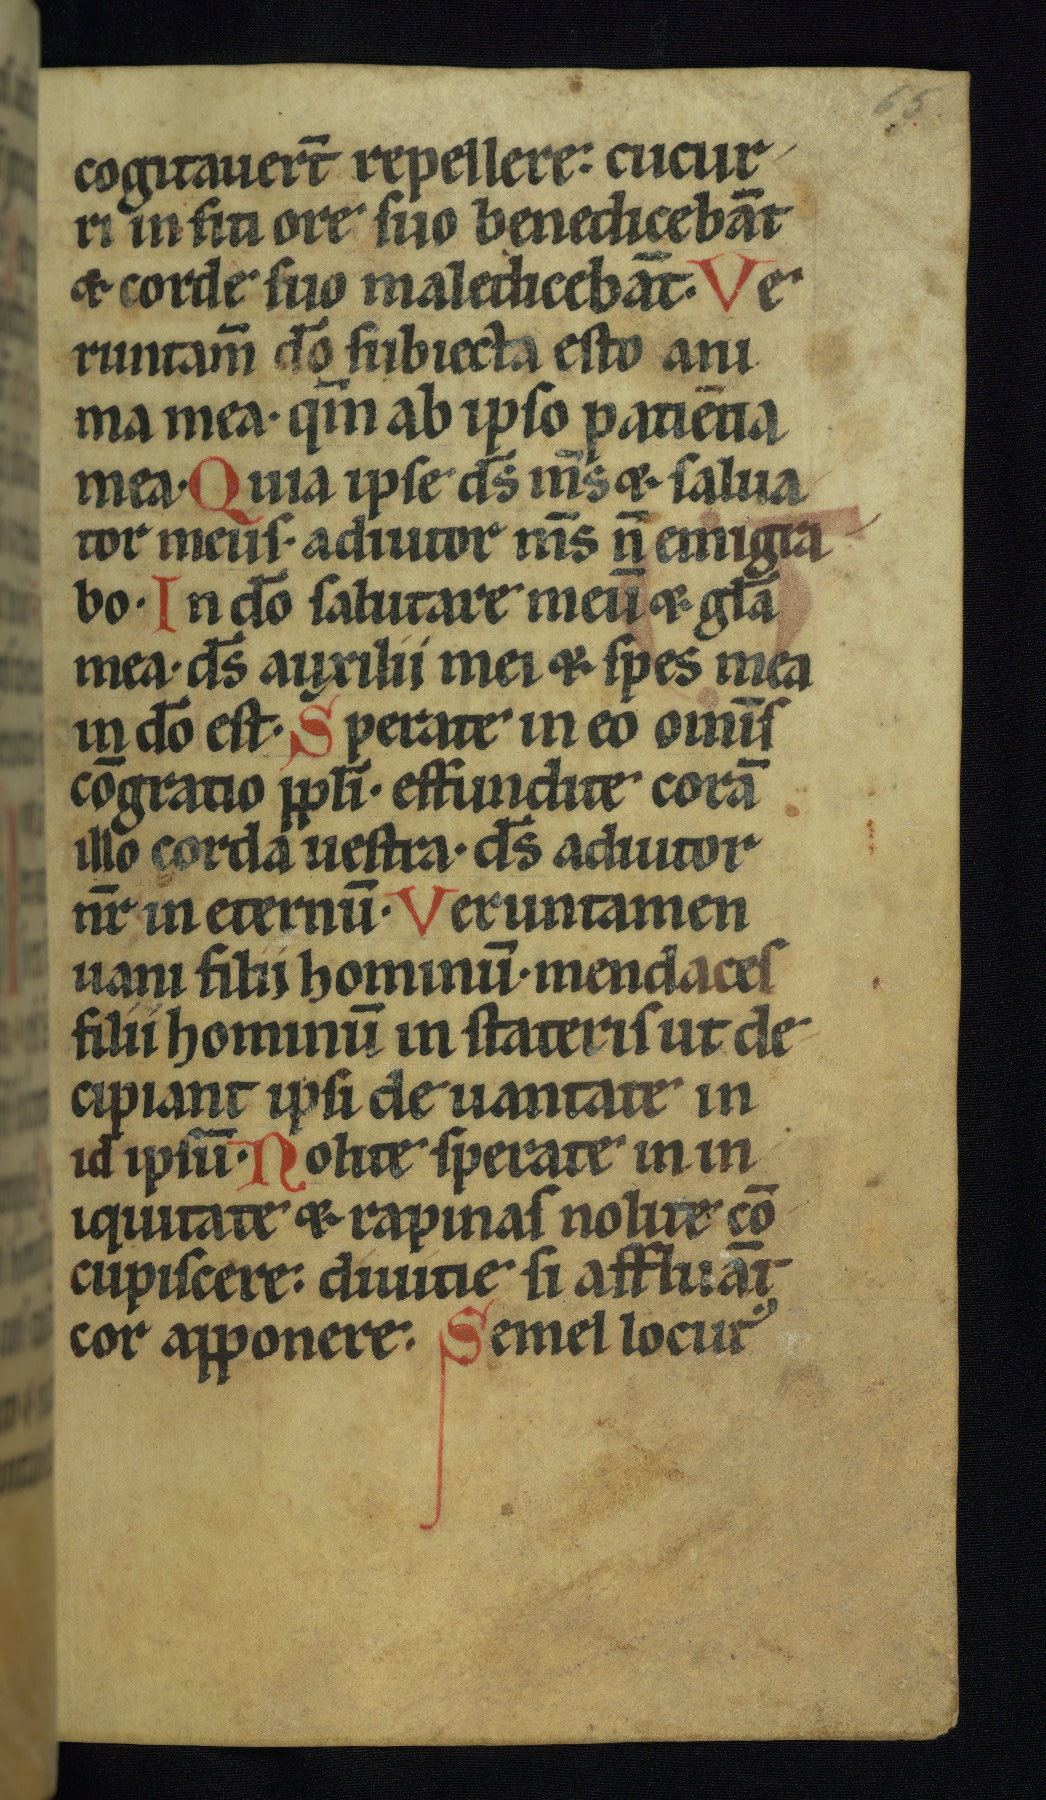 65
cogitauert̄ repellere: cucur
ri in siti ore suo benedicebāt
⁊ corde suo maledicebāt. Ve
runtam̄ dō subiecta esto ani
ma mea. qm̄ ab ipso patiētia
mea. Quia ipse ds̄ ms̄ ⁊ salua
tor meus. adiutor ms̄ n̄ emigra
bo. In dō salutare meū ⁊ glā
mea. ds̄ auxilii mei ⁊ spes mea
in dō est. Sperate in eo omīs
cōgratio ppli̅. effundite corā
illo corda uestra. ds̄ adiutor
nr̄ in eternū. Veruntamen
uani filii hominū. mendaces
filii hominū in stateris ut de
cipiant ipsi de uanitate in
id ipsū. Nolite sperate in in
iquitate ⁊ rapinas nolite cō
cupiscere: diuitie si affluāt
cor apponere. Semel locutꝰ